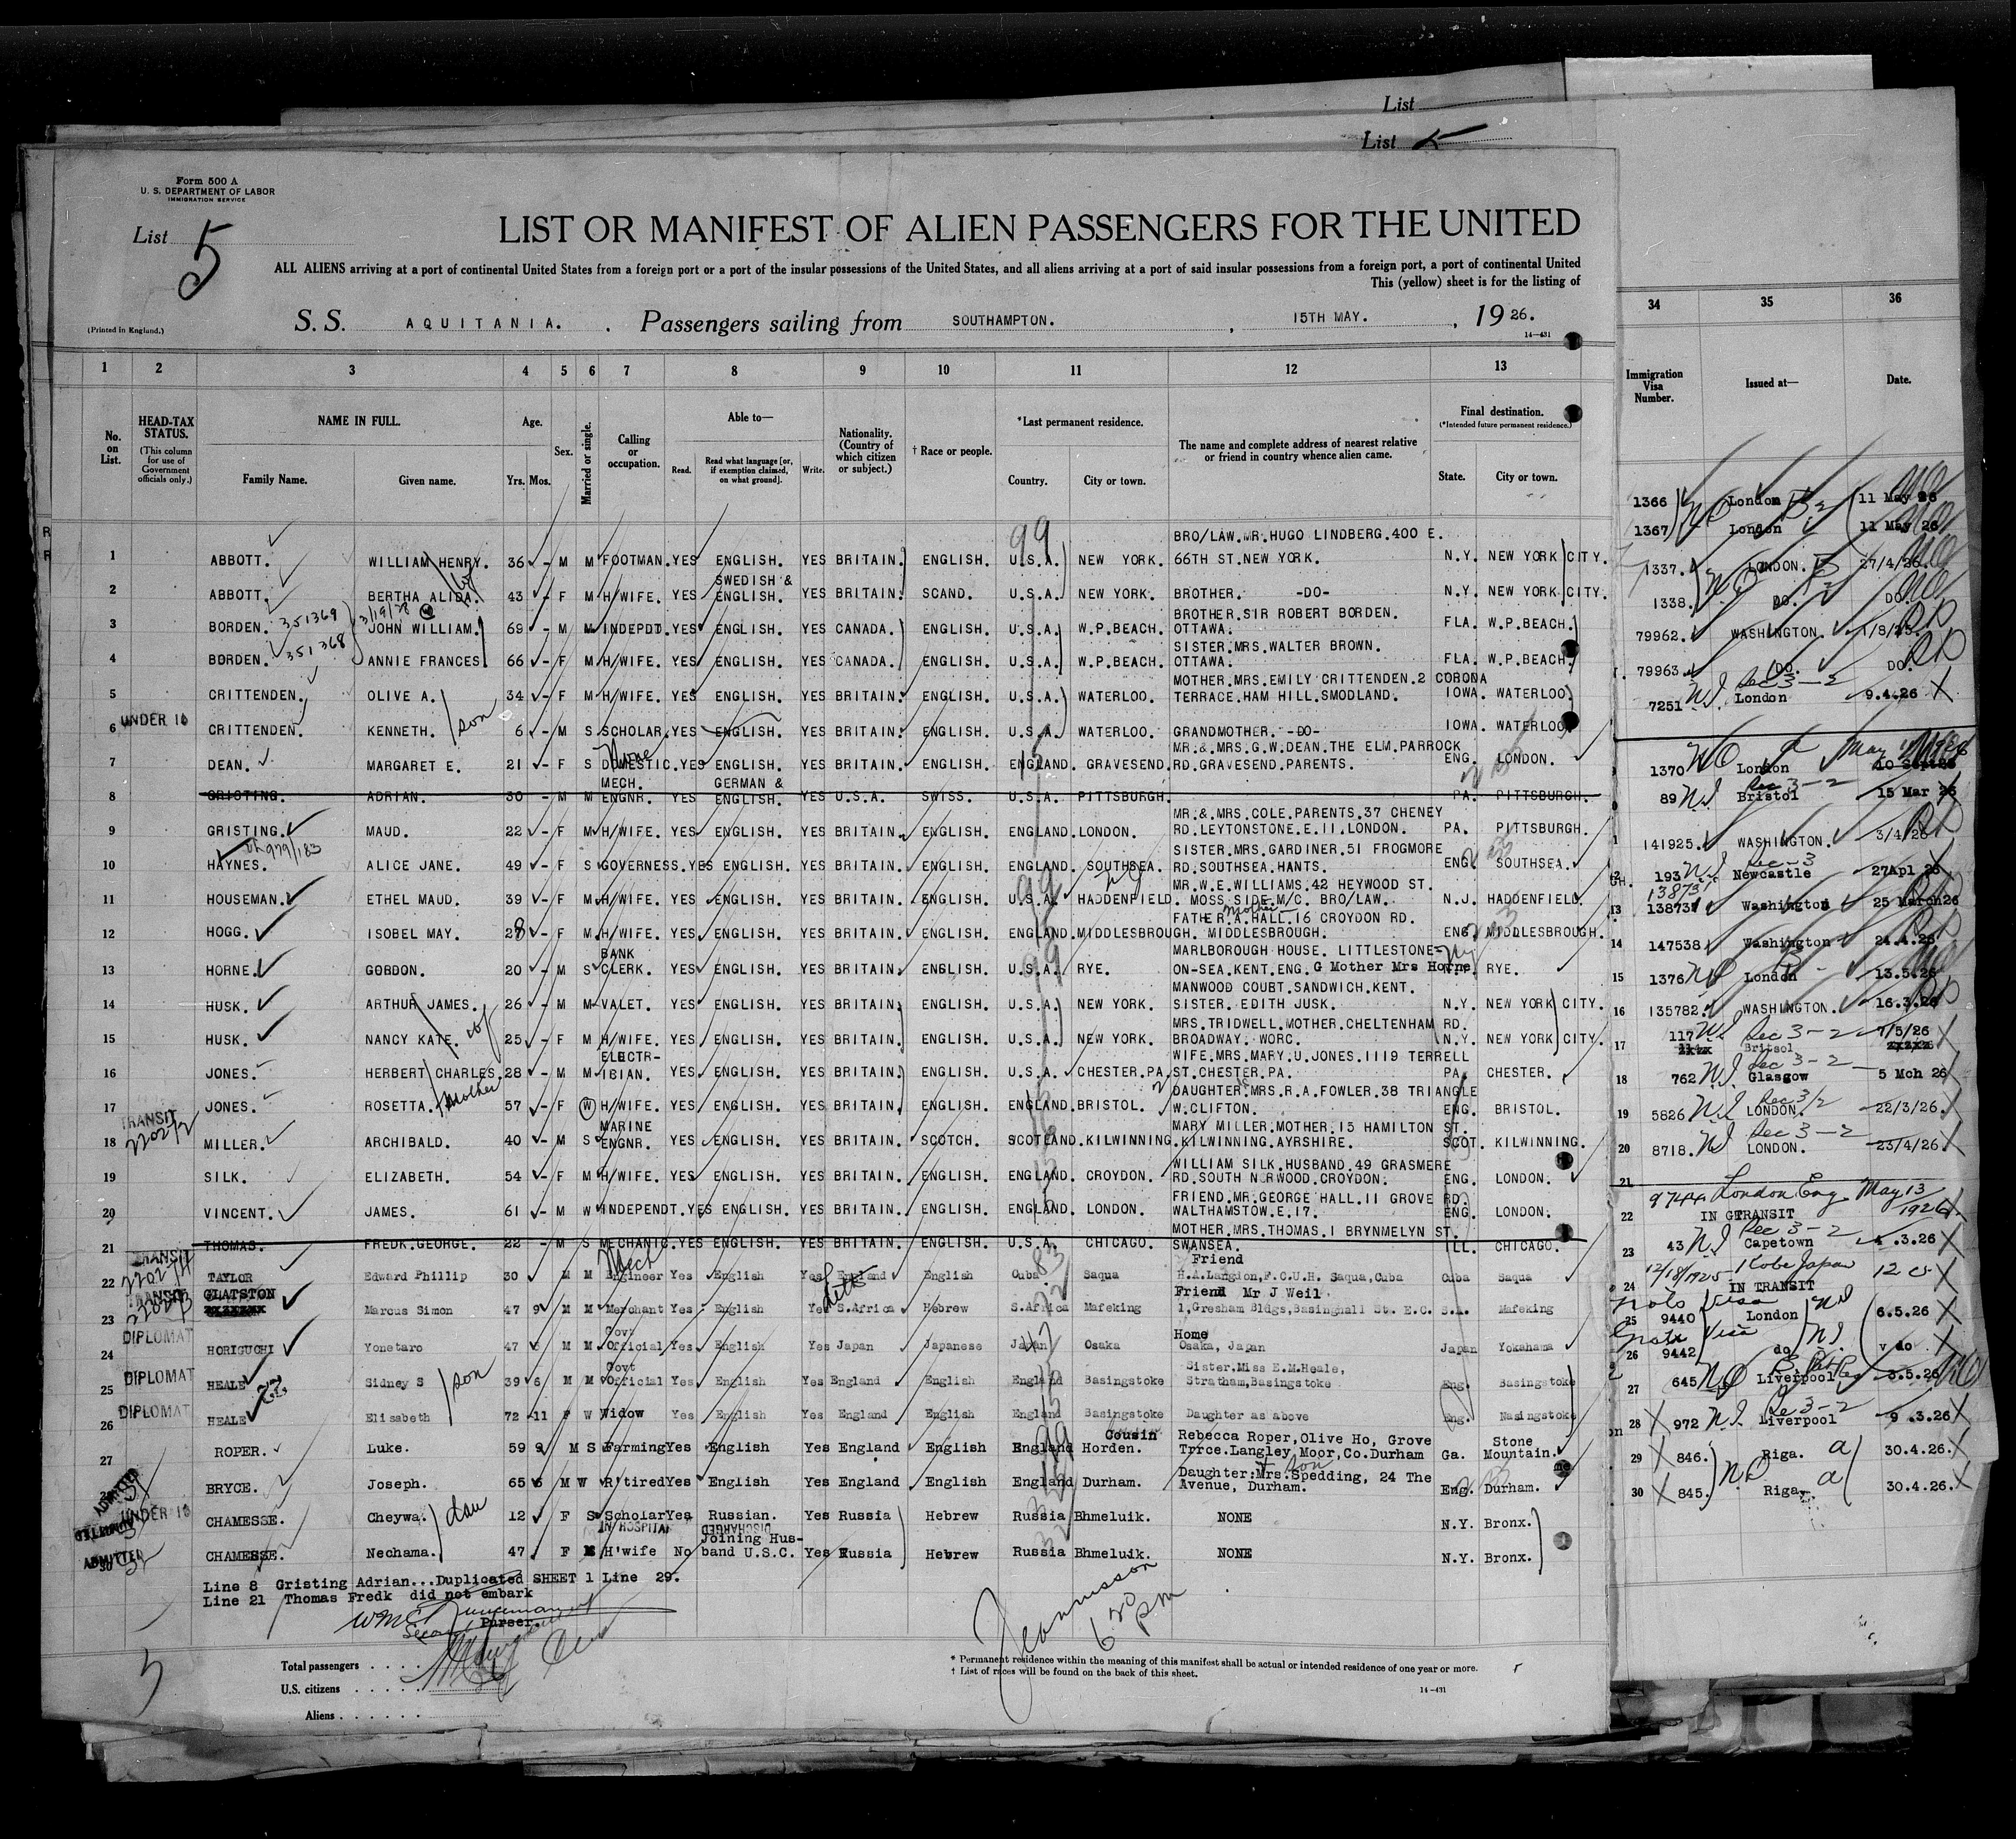 List
List 5
Form 500 A
U. S. DEPARTMENT OF LABOR
IMMIGRATION SERVICE
List 5
LIST OR MANIFEST OF ALIEN PASSENGERS FOR THE UNITED
ALL ALIENS arriving at a port of continental United States from a foreign port or a port of the insular possessions of the United States, and all aliens arriving at a port of said insular possessions from a foreign port, a port of continental United
This (yellow) sheet is for the listing of
(Printed in England.)
S. S. AQUITANIA. , Passengers sailing from SOUTHAMPTON. , 15TH MAY. , 19 26.
14-431
1 2 3 4 5 6 7 8 9 10 11 12 13
No. on List.
HEAD-TAX STATUS.
(This column for use of Government officials only.)
NAME IN FULL.
Family Name. Given name.
Age.
Yrs. Mos.
Sex.
Married or single.
Calling or occupation.
Able to—
Read. Read what language [or, if exemption claimed, on what ground]. Write.
Nationality. (Country of which citizen or subject.)
† Race or people.
*Last permanent residence.
Country. City or town.
The name and complete address of nearest relative or friend in country whence alien came.
Final destination.
(*Intended future permanent residence.)
State. City or town.
R
R
99
1 ABBOTT. WILLIAM HENRY. 36 - M M FOOTMAN. YES ENGLISH. YES BRITAIN. ENGLISH. U.S.A. NEW YORK. BRO/LAW. MR. HUGO LINDBERG. 400 E. 66TH ST. NEW YORK. N.Y. NEW YORK CITY.
wf
2 ABBOTT. BERTHA ALIDA. 43 - F M H/WIFE. YES SWEDISH & ENGLISH. YES BRITAIN. SCAND. U.S.A. NEW YORK. BROTHER. -DO- N.Y. NEW YORK CITY.
3 BORDEN. 351369 3/19/28 JOHN WILLIAM. 69 - M M INDEPDT. YES ENGLISH. YES CANADA. ENGLISH. U.S.A. W.P.BEACH. BROTHER. SIR ROBERT BORDEN. OTTAWA. FLA. W.P.BEACH.
4 BORDEN. 351368 ANNIE FRANCES 66 - F M H/WIFE. YES ENGLISH. YES CANADA. ENGLISH. U.S.A. W.P.BEACH. SISTER. MRS. WALTER BROWN. OTTAWA. FLA. W.P.BEACH.
5 CRITTENDEN. OLIVE A. 34 - F M H/WIFE. YES ENGLISH. YES BRITAIN. ENGLISH. U.S.A. WATERLOO. MOTHER. MRS. EMILY CRITTENDEN. 2 CORONA TERRACE. HAM HILL. SMODLAND. IOWA. WATERLOO.
UNDER 16
6 CRITTENDEN. KENNETH. son 6 - M S SCHOLAR. YES ENGLISH. YES BRITAIN. ENGLISH. U.S.A. WATERLOO. GRANDMOTHER. -DO- IOWA. WATERLOO.
7 DEAN. MARGARET E. 21 - F S DOMESTIC. None YES ENGLISH. YES BRITAIN. ENGLISH. ENGLAND. GRAVESEND. MR. & MRS. G.W. DEAN. THE ELM. PARROCK RD. GRAVESEND. PARENTS. ENG. LONDON.
8 GRISTING. ADRIAN. 30 - M M MECH. ENGNR. YES GERMAN & ENGLISH. YES U.S.A. SWISS. U.S.A. PITTSBURGH. PA. PITTSBURGH.
9 GRISTING. MAUD. 22 - F M H/WIFE. YES ENGLISH. YES BRITAIN. ENGLISH. ENGLAND. LONDON. MR. & MRS. COLE. PARENTS. 37 CHENEY RD. LEYTONSTONE. E.11. LONDON. PA. PITTSBURGH.
979/183
10 HAYNES. ALICE JANE. 49 - F S GOVERNESS. YES ENGLISH. YES BRITAIN. ENGLISH. ENGLAND. SOUTHSEA. SISTER. MRS. GARDINER. 51 FROGMORE RD. SOUTHSEA. HANTS. ENG. SOUTHSEA.
11 HOUSEMAN. ETHEL MAUD. 39 - F M H/WIFE. YES ENGLISH. YES BRITAIN. ENGLISH. U.S.A. HADDENFIELD. MR. W.E. WILLIAMS. 42 HEYWOOD ST. MOSS SIDE M/C. BRO/LAW. N.J. HADDENFIELD.
12 HOGG. ISOBEL MAY. 28 - F M H/WIFE. YES ENGLISH. YES BRITAIN. ENGLISH. ENGLAND. MIDDLESBROUGH. FATHER. mother A. HALL. 16 CROYDON RD. MIDDLESBROUGH. ENG. MIDDLESBROUGH.
13 HORNE. GORDON. 20 - M S BANK CLERK. YES ENGLISH. YES BRITAIN. ENGLISH. U.S.A. RYE. MARLBOROUGH HOUSE. LITTLESTONE-ON-SEA. KENT. ENG. G Mother Mrs Horne. NY RYE.
14 HUSK. ARTHUR JAMES. 26 - M M VALET. YES ENGLISH. YES BRITAIN. ENGLISH. U.S.A. NEW YORK. MANWOOD COURT. SANDWICH. KENT. SISTER. EDITH JUSK. N.Y. NEW YORK CITY.
wf
15 HUSK. NANCY KATE. 25 - F M H/WIFE. YES ENGLISH. YES BRITAIN. ENGLISH. U.S.A. NEW YORK. MRS. TRIDWELL. MOTHER. CHELTENHAM RD. BROADWAY. WORC. N.Y. NEW YORK CITY.
16 JONES. HERBERT CHARLES. 28 - M M ELECTR-ICIAN. YES ENGLISH. YES BRITAIN. ENGLISH. U.S.A. CHESTER. PA. WIFE. MRS. MARY. U. JONES. 1119 TERRELL ST. CHESTER. PA. PA. CHESTER.
mother
17 JONES. ROSETTA. 57 - F W H/WIFE. YES ENGLISH. YES BRITAIN. ENGLISH. ENGLAND. BRISTOL. DAUGHTER. MRS. R.A. FOWLER. 38 TRIANGLE W. CLIFTON. ENG. BRISTOL.
TRANSIT
18 MILLER. ARCHIBALD. 40 - M S MARINE ENGNR. YES ENGLISH. YES BRITAIN. SCOTCH. SCOTLAND. KILWINNING. MARY MILLER. MOTHER. 15 HAMILTON ST. KILWINNING. AYRSHIRE. SCOT. KILWINNING.
19 SILK. ELIZABETH. 54 - F M H/WIFE. YES ENGLISH. YES BRITAIN. ENGLISH. ENGLAND. CROYDON. WILLIAM SILK. HUSBAND. 49 GRASMERE RD. SOUTH NORWOOD. CROYDON. ENG. LONDON.
20 VINCENT. JAMES. 61 - M W INDEPENDT. YES ENGLISH. YES BRITAIN. ENGLISH. ENGLAND. LONDON. FRIEND. MR. GEORGE HALL. 11 GROVE RD. WALTHAMSTOW. E.17. ENG. LONDON.
21 THOMAS. FREDK. GEORGE. 22 - M S MECHANIC. YES ENGLISH. YES BRITAIN. ENGLISH. U.S.A. CHICAGO. MOTHER. MRS. THOMAS. 1 BRYNMELYN ST. SWANSEA. ILL. CHICAGO.
TRANSIT
22 TAYLOR Edward Phillip 30 M M Mech Engineer Yes English Yes England English Cuba Saqua Friend H.A. Langdon, F.C.U.H. Saqua, Cuba Cuba Saqua
TRANSIT
23 GLATSTON Marcus Simon 47 9 M M Merchant Yes English Yes S.Africa Hebrew S.Africa Mafeking Friend Mr J Weil 1, Gresham Bldgs, Basinghall St. E.C. S.A. Mafeking
DIPLOMAT
24 HORIGUCHI Yonetaro 47 M M Govt Official Yes English Yes Japan Japanese Japan Osaka Home Osaka, Japan Japan Yokahama
DIPLOMAT
25 HEALE Sidney S son 39 6 M M Govt Official Yes English Yes England English England Basingstoke Sister, Miss E.M. Heale, Stratham, Basingstoke Eng. Basingstoke
DIPLOMAT
26 HEALE Elisabeth 72 -11 F W Widow Yes English Yes England English England Basingstoke Daughter as above Eng. Nasingstoke
27 ROPER. Luke. 59 9 M S Farming Yes English Yes England English England Horden. Cousin Rebecca Roper, Olive Ho, Grove Trrce. Langley Moor, Co. Durham Ga. Stone Mountain.
BRYCE. Joseph. 65 6 M W R'tired Yes English Yes England English England Durham. Daughter: Mrs. Spedding, 24 The Avenue, Durham. Eng. Durham.
ADMITTED UNDER 16
CHAMESSE. Cheywa. dau 12 F S Scholar Yes Russian. Yes Russia Hebrew Russia Bhmeluik. NONE N.Y. Bronx.
IN HOSPITAL DISCHARGED
ADMITTED
30 CHAMESSE. Nechama. 47 F M H'wife No Joining Hus-band U.S.C. Yes Russia Hebrew Russia Bhmeluik. NONE N.Y. Bronx.
Line 8 Gristing Adrian...Duplicated SHEET 1 Line 29.
Line 21 Thomas Fredk did not embark
Purser.
6 30 pm
5
Total passengers
U.S. citizens
Aliens
* Permanent residence within the meaning of this manifest shall be actual or intended residence of one year or more.
† List of races will be found on the back of this sheet.
14-431
34 35 36
Immigration Visa Number. Issued at— Date.
1366 London 11 May 26
1367 London 11 May 26
1337. LONDON. 27/4/26.
1338. DO. DO.
79962. WASHINGTON. 1/8/25.
79963. DO. DO.
7251 London 9.4.26
1370 London 10 Sept 25
89 Bristol 15 Mar 26
141925. WASHINGTON. 3/4/26
193 Newcastle 27Apl 26
13 138731 Washington 25 March26
14 147538 Washington 24.4.26
15 1376 London 13.5.26
16 135782. WASHINGTON. 16.3.26
17 117 Britsol 7/5/26
18 762 Glasgow 5 Mch 26
19 5826 LONDON. 22/3/26
20 8718. LONDON. 23/4/26
21
22 9744 London Eng May 13 1926
IN TRANSIT
23 43 Capetown .3.26
24 12/18/1925 Kobe Japan
IN TRANSIT
25 9440 London 6.5.26
26 9442 do do
27 645 Liverpool 3.5.26
28 972 Liverpool 9 .3.26
29 846. Riga. 30.4.26.
30 845. Riga. 30.4.26.